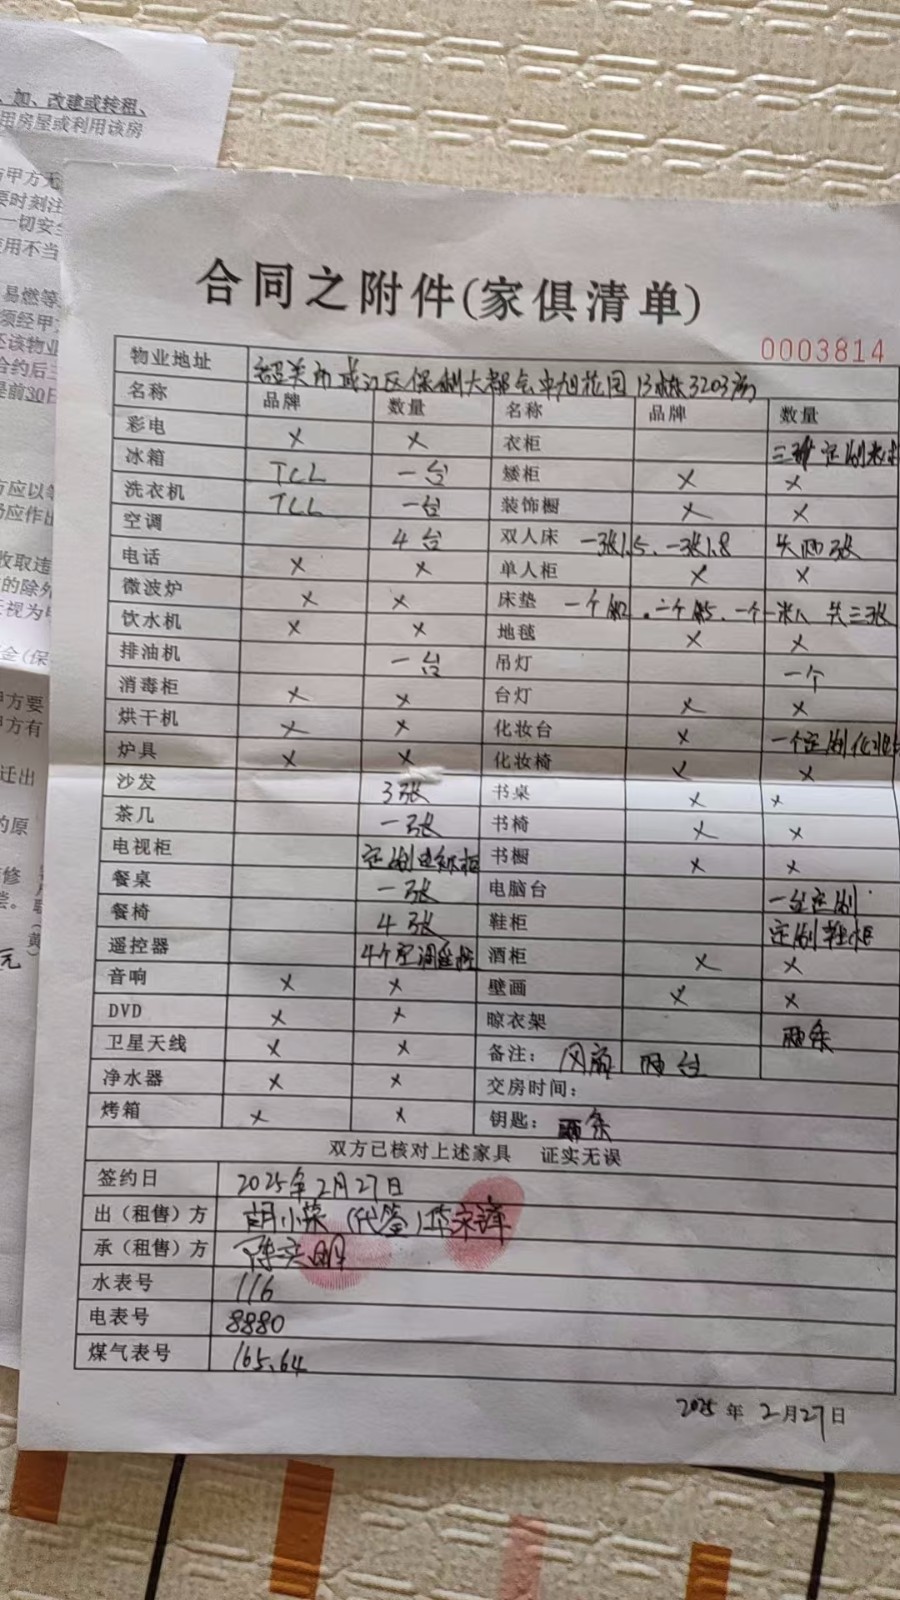 加、改建或转租、
用房屋或利用该房
甲方无
要时刻注
一切安全
使用不当
易燃等
须经甲
还该物业
合约后三
提前30日
方应以
仍应作出
收取违
的除外
视为
金(保
甲方要
甲方有
迁出
的原
修
元
合同之附件(家俱清单)
0003814
物业地址 韶关市武江区保利大都会 花园13栋3203房
名称 品牌 数量 名称 品牌 数量
彩电 × × 衣柜 三 定制衣柜
冰箱 TCL 一台 矮柜 × ×
洗衣机 TCL 一台 装饰橱 × ×
空调 4台 双人床 一张1.5、一张1.8 共两张
电话 × × 单人柜 × ×
微波炉 × × 床垫 一个 一个 一个一米八 共三张
饮水机 × × 地毯 × ×
排油机 一台 吊灯 一个
消毒柜 × × 台灯 × ×
烘干机 × × 化妆台 × 一个定制化妆
炉具 × × 化妆椅 × ×
沙发 3张 书桌 × ×
茶几 一张 书椅 × ×
电视柜 定制电视柜 书橱 × ×
餐桌 一张 电脑台 一台定制
餐椅 4张 鞋柜 定制鞋柜
遥控器 4个空调遥控 酒柜 × ×
音响 × × 壁画 × ×
DVD × × 晾衣架 两条
卫星天线 × × 备注: 风扇 两台
净水器 × × 交房时间:
烤箱 × × 钥匙: 两条
双方已核对上述家具 证实无误
签约日 2025年2月27日
出(租售)方 胡小英 (代签)
承(租售)方 陈 明
水表号 116
电表号 8880
煤气表号 165.64
2025年2月27日